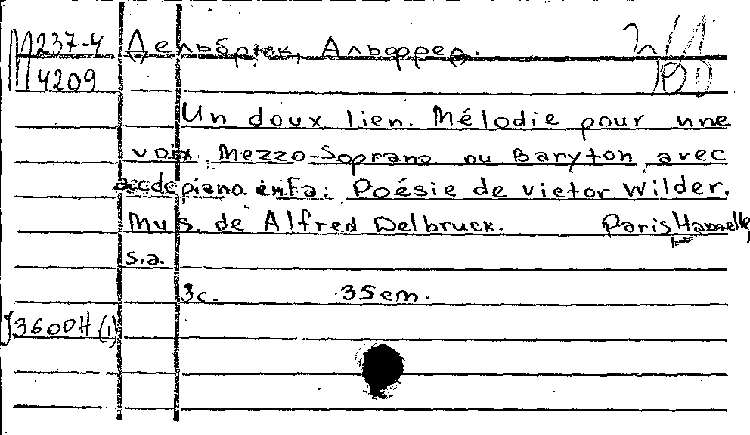 М237-4 Дельбрюк, Альфред.
4209
Un doux lien. Mélodie pour une
voix Mezzo-Soprano ou Baryton avec
acc de piano en Fa: Poésie de victor Wilder.
Mus. de Alfred Delbruck. Paris, Hamelle,
s.a.
3c. 35cm.